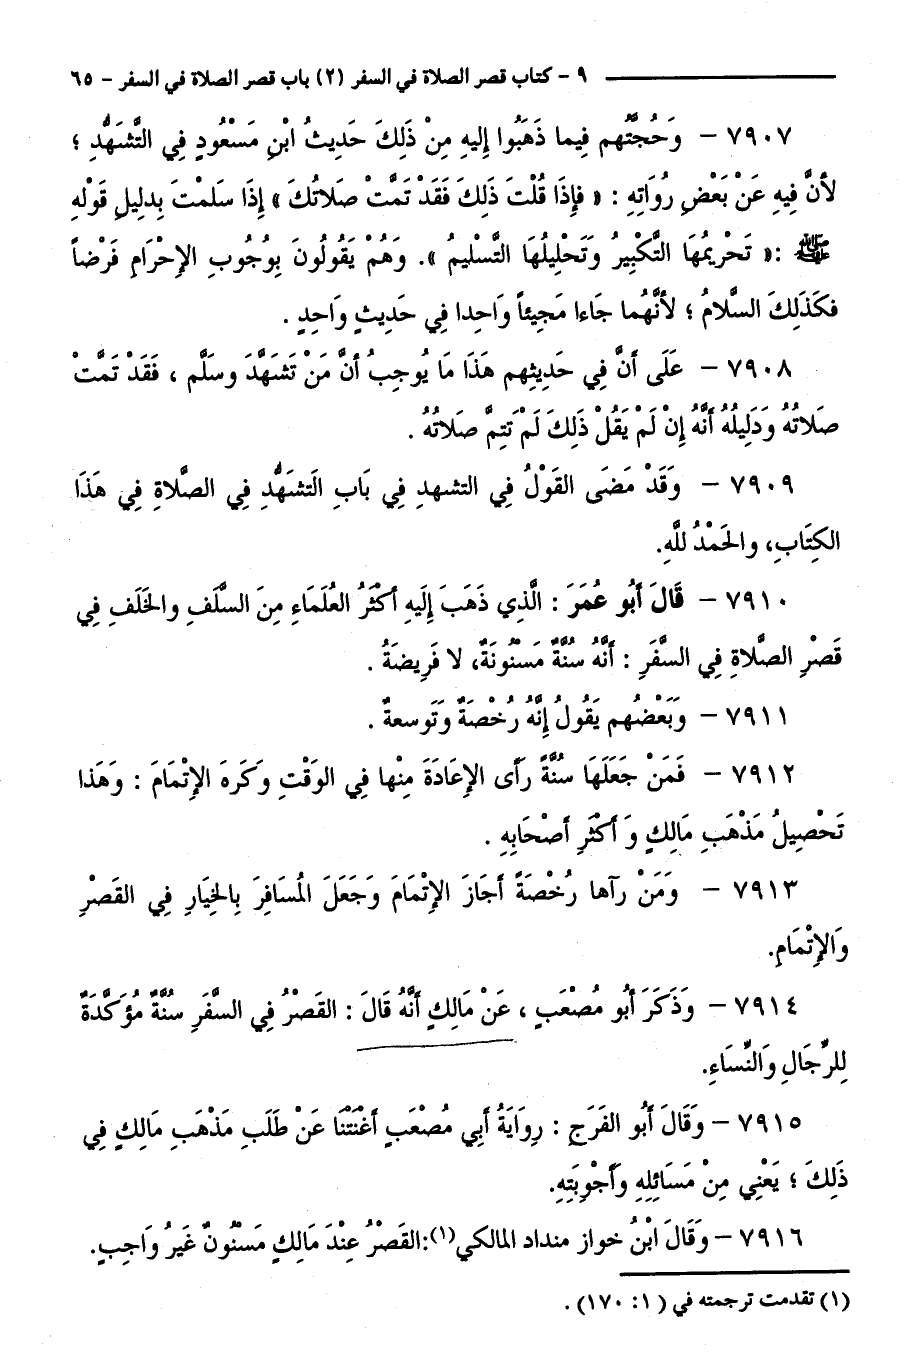 ٩ - كتاب قصر الصلاة في السفر (٢) باب قصر الصلاة في السفر - ٦٥
٧٩٠٧ - وَحُجَّتُهم فِيما ذَهَبُوا إِليهِ مِنْ ذَلِكَ حَدِيثُ ابْنِ مَسْعُودٍ فِي التَّشَهُّدِ ؛
لأنَّ فِيهِ عَنْ بَعْضِ رُوَاتِهِ : « فإِذَا قُلْتَ ذَلِكَ فَقَدْ تَمَّتْ صَلاتُكَ » إِذَا سَلمْتَ بِدلِيلِ قَوْلِهِ
ﷺ :« تَحْرِيمُهَا التَّكْبِيرُ وَتَحْلِيلُهَا التَّسْلِيمُ ». وَهُمْ يَقُولُونَ بِوُجُوبِ الإِحْرَامِ فَرْضاً
فكَذَلِكَ السَّلامُ ؛ لأنَّهُما جَاءا مَجِيئاً وَاحِدا فِي حَدِيثٍ وَاحِدٍ .
٧٩٠٨ - عَلَى أنَّ فِي حَدِيثِهم هَذَا مَا يُوجِبُ أنَّ مَنْ تَشَهَّدَ وسَلَّم ، فَقَدْ تَمَّتْ
صَلاتُهُ وَدَلِيلُهُ أنَّهُ إِنْ لَمْ يَقُلْ ذَلِكَ لَمْ تَتِمَّ صَلاتُهُ .
٧٩٠٩ - وَقَدْ مَضَى القَوْلُ فِي التشهدِ فِي بَابِ التشَهُّدِ فِي الصَّلاةِ فِي هَذَا
الكِتَابِ، والحَمْدُ للَّهِ.
٧٩١٠ - قَالَ أبُو عُمَرَ : الَّذِي ذَهَبَ إِلَيهِ أكْثَرُ العُلَمَاءِ مِنَ السَّلَفِ والخَلَفِ فِي
قَصْرِ الصَّلاةِ فِي السَّفَرِ : أنَّهُ سُنَّةٌ مَسْنُونَةٌ، لا فَرِيضَةُ .
٧٩١١ - وَبَعْضُهم يَقُولُ إِنَّهُ رُخْصَةٌ وَتَوسعةٌ .
٧٩١٢ - فَمَنْ جَعَلَهَا سُنَّةً رَأى الإِعَادَةَ مِنْها فِي الوَقْتِ وَكَرِهَ الإِتْمَامَ : وَهَذا
تَحْصِيلُ مَذْهَبِ مَالِكٍ وَ أكْثَرِ أصْحَابِهِ .
٧٩١٣ - وَمَنْ رآها رُخْصَةً أجَازَ الإِتْمَامَ وَجَعَلَ المُسَافِرَ بِالخِيَارِ فِي القَصْرِ
وَالإِتْمَامِ.
٧٩١٤ - وَذَكَرَ أبُو مُصْعَبٍ ، عَنْ مَالِكٍ أنَّهُ قَالَ : القَصْرُ فِي السَّفَرِ سُنَّةٌ مُؤَكَّدَةٌ
لِلرِّجَالِ وَالنِّسَاءِ.
٧٩١٥ - وَقَالَ أبُو الفَرَجِ : رِوَايَةُ أبِي مُصْعَبٍ أغْنَتْنَا عَنْ طَلَبِ مَذْهَبِ مَالِكٍ فِي
ذَلِكَ ؛ يَعْنِي مِنْ مَسَائِلِهِ وَأجْوِبَتِهِ.
٧٩١٦ - وَقَالَ ابْنُ خواز منداد المالكي(١):القَصْرُ عِنْدَ مَالِكٍ مَسْنُونٌ غَيرُ وَاجِبٍ.
(١) تقدمت ترجمته في (١: ١٧٠) .